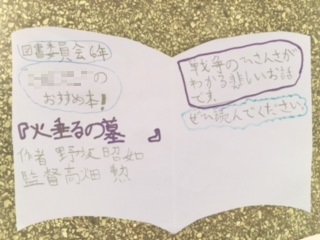 図書委員会6年
の
おすすめ本!
『火垂るの墓』
作者 野坂昭如
監督高畑 勲
戦争のひさんさが
わかる悲しいお話
です。
ぜひ読んでください